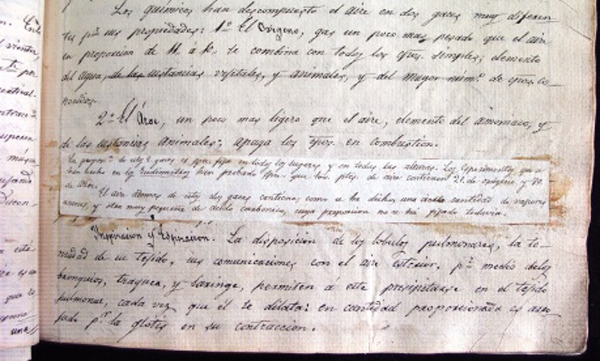 Los químicos han descompuesto el aire en dos gases muy diferen-
tes pr. sus propiedades: 1º El Oxígeno, gas un poco mas pesado que el aire
en proporcion de 11 a 10, se combina con todos los cpos. simples; elemento
del agua, de las sustancias vejetales, y animales, y del mayor núm.º de cpos. co-
nocidos.
2º El Azoe, un poco mas lijero que el aire, elemento del amoniaco, y
de las sustancias animales; apaga los cpos. en combustion.
La propn. de estos 2 gases es fija en todos los lugares y en todas las alturas. Los esperimentos que se
han hecho en los eudiometros han probado que 100 ptes. de aire contienen 21 de oxigeno y 79
de Azoe.
El aire ademas de estos dos gases contiene, como se ha dicho, una cantidad de vapores
acuosos, y otra muy pequeña de ácido carbonico, cuya proporcion no se ha fijado todavia.
Inspiracion y Espiracion. La disposicion de los lobulos pulmonares, la te-
nuidad de su tejido, sus comunicaciones con el aire Esterior, pr. medio de los
bronquios, traquea, y laringe, permiten á este precipitarse en el tejido
pulmonar, cada vez que él se dilata: en cantidad proporcionada es arro-
jado pr. la glotis en su contraccion.